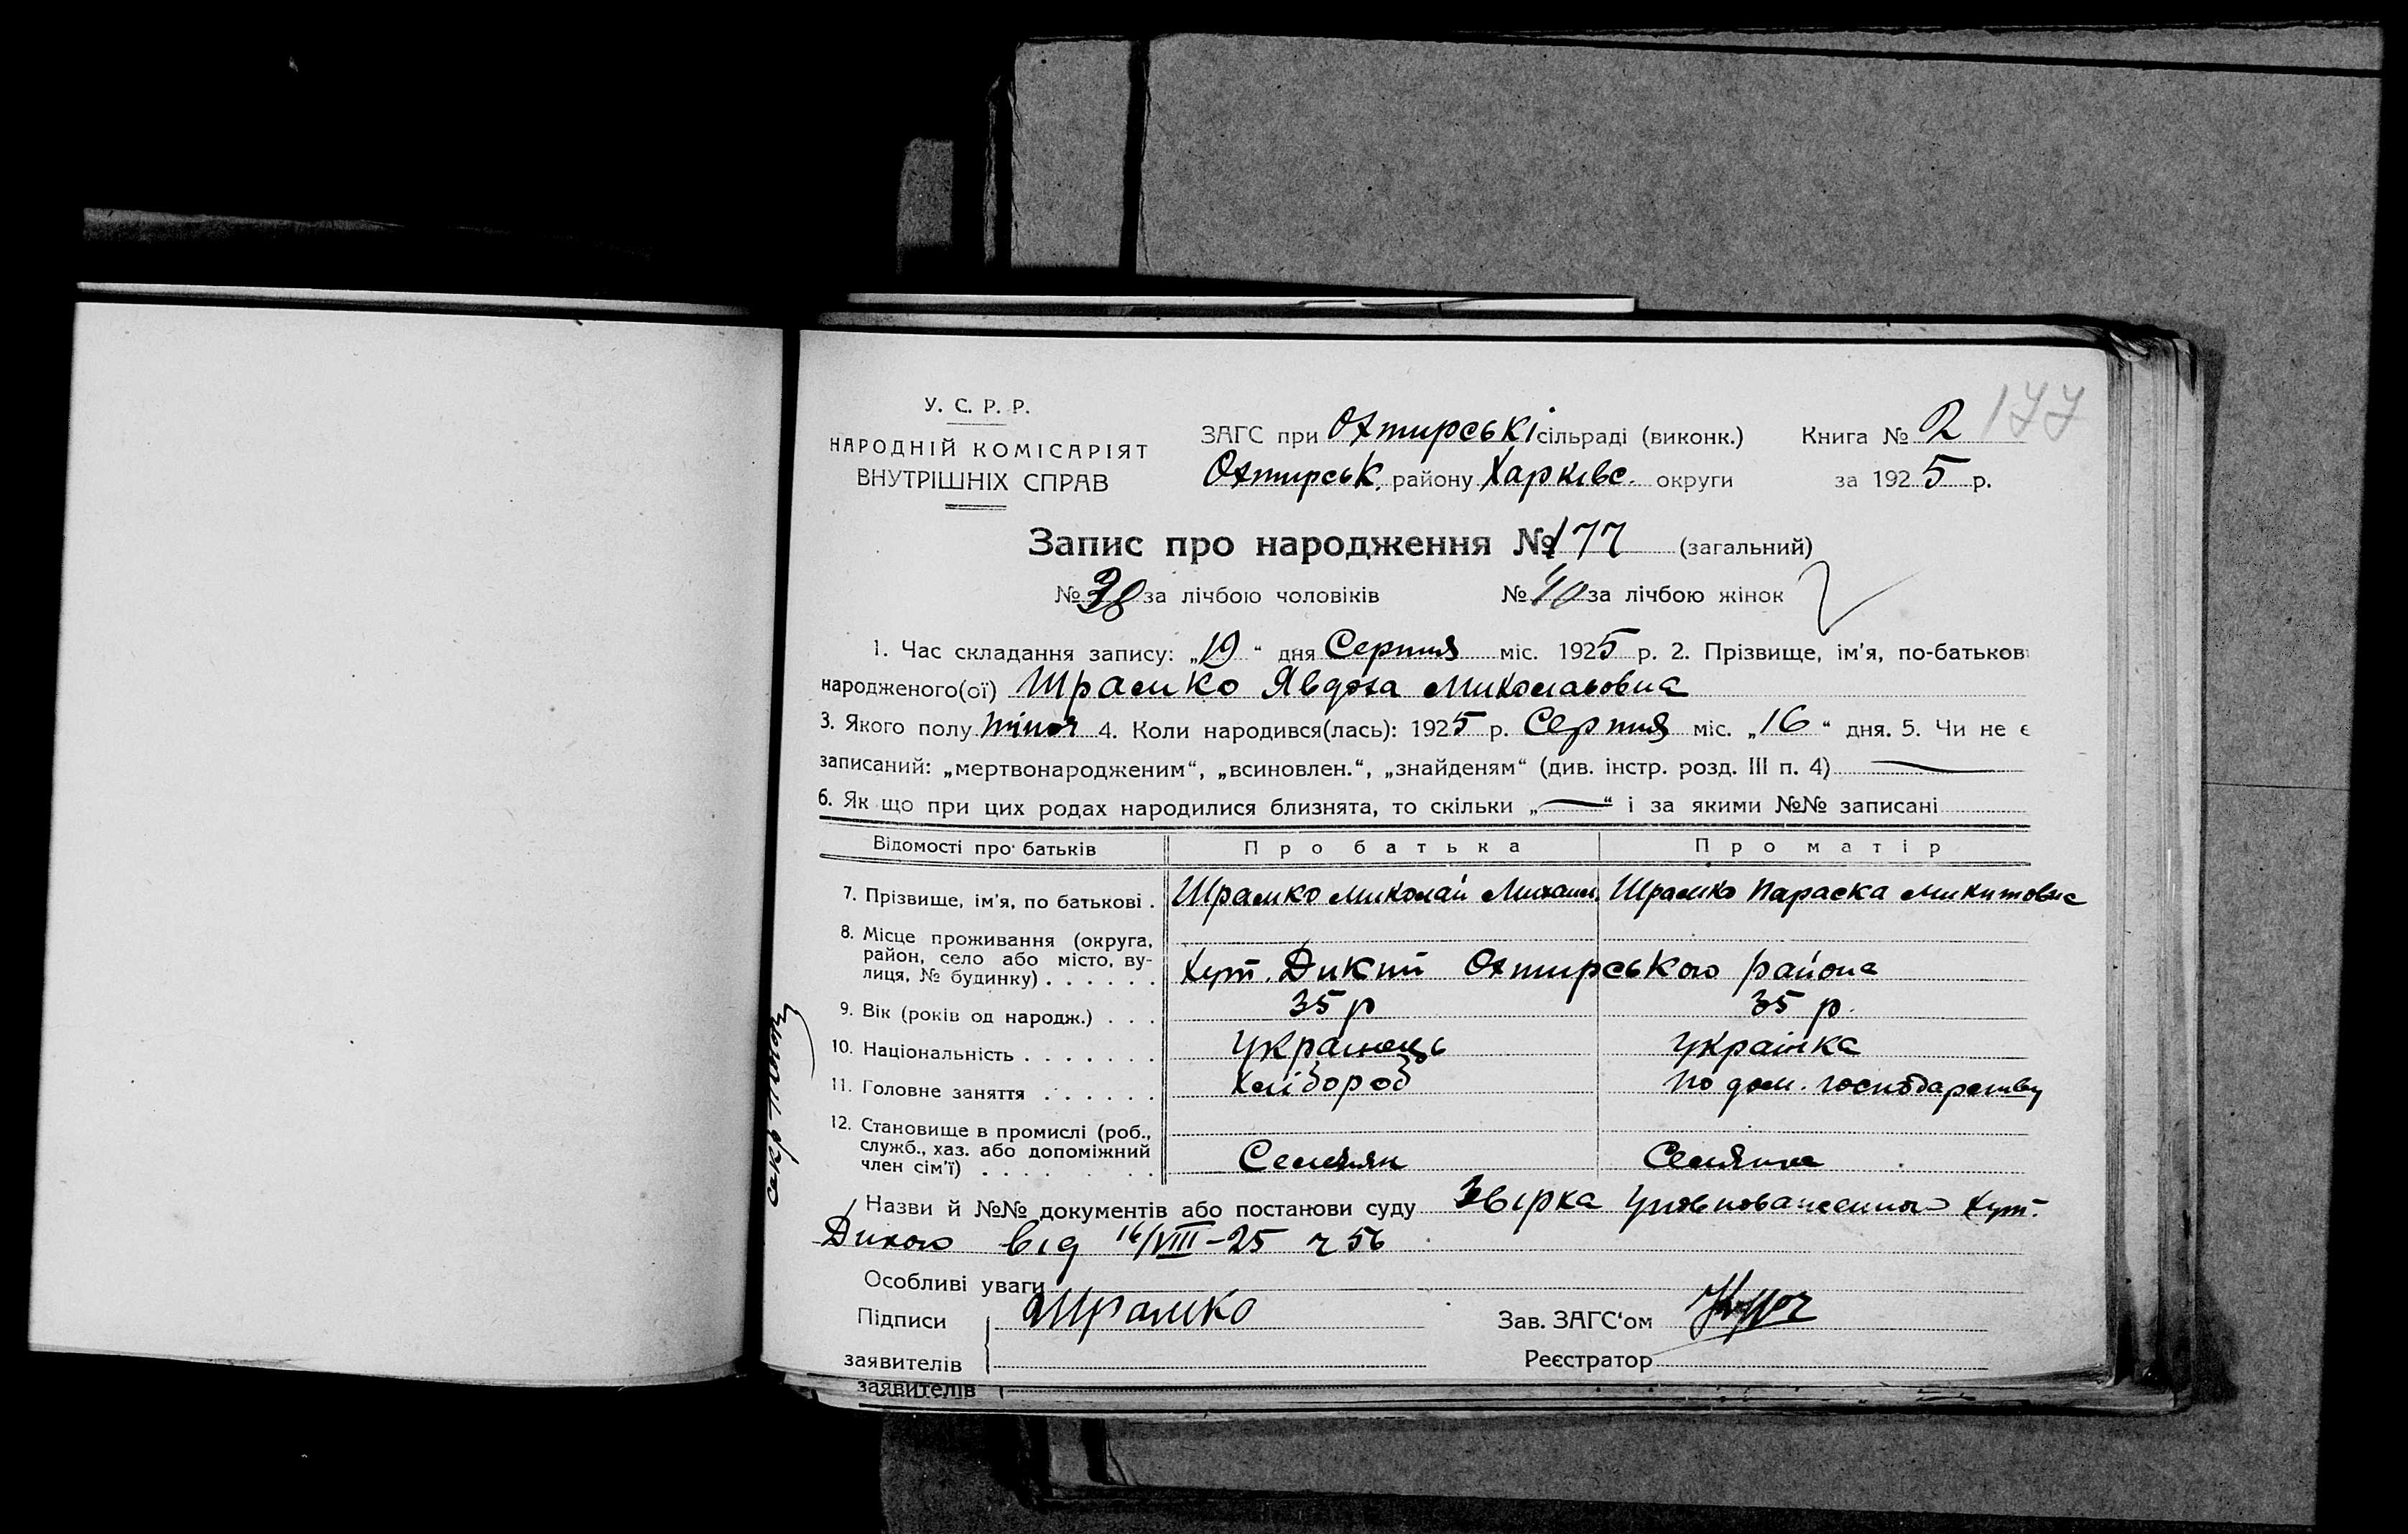 177
У. С. Р. Р.
НАРОДНІЙ КОМІСАРІЯТ
ВНУТРІШНІХ СПРАВ
ЗАГС при Охтирські сільраді (виконк.) Книга № 2
Охтирськ. району Харківс. округи за 1925 р.
Запис про народження № 177 (загальний)
№ 38 за лічбою чоловіків № за лічбою жінок
1. Час складання запису: „19“ дня Серпня міс. 1925 р. 2. Прізвище, ім'я, по-батькові
народженого(ої) Шрамко Явдоха Миколаьовна
3. Якого полу жіноч 4. Коли народився(лась): 1925 р. Серпня міс. „16“ дня. 5. Чи не є
записаний: „мертвонародженим“, „всиновлен.“, „знайденям“ (див. інстр. розд. III п. 4)
6. Як що при цих родах народилися близнята, то скільки „—“ і за якими №№ записані
Відомості про батьків Про батька Про матір
7. Прізвище, ім'я, по батькові . Шрамко Миколай Михаил. Шрамко Параска Микитовна
8. Місце проживання (округа,
район, село або місто, ву-
лиця, № будинку) . . . . . . Хут. Дикий Охтирського района
9. Вік (років од народж.) . . . 35 р 35 р.
10. Національність . . . . . . . Українець Українка
11. Головне заняття . . . . . . Хлібороб по дом. господарству
12. Становище в промислі (роб.,
служб., хаз. або допоміжний
член сім'ї) . . . . . . Селянин Селянка
Назви й №№ документів або постанови суду Звірка Уповноваженного хут.
Дикого від 16/VIII-25 ч 56
Особливі уваги
Підписи Шрамко Зав. ЗАГС'ом
заявителів Реєстратор
заявителів